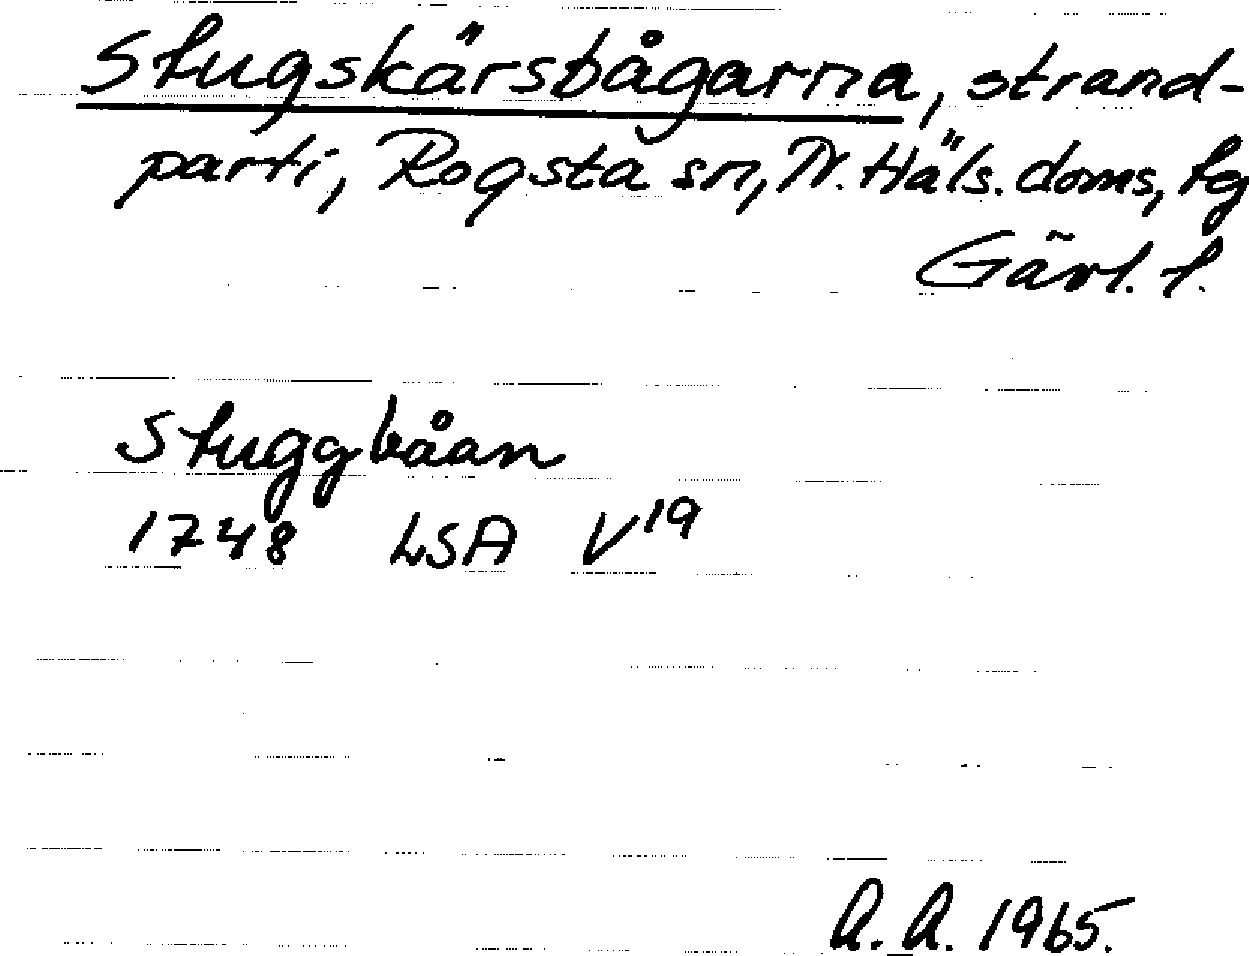 Stugskärsbågarna, strand-
parti, Rogsta sn, N. Häls. doms, tg
Gävl. l.
Stuggbåan
1748 LSA V19
A. A. 1965.